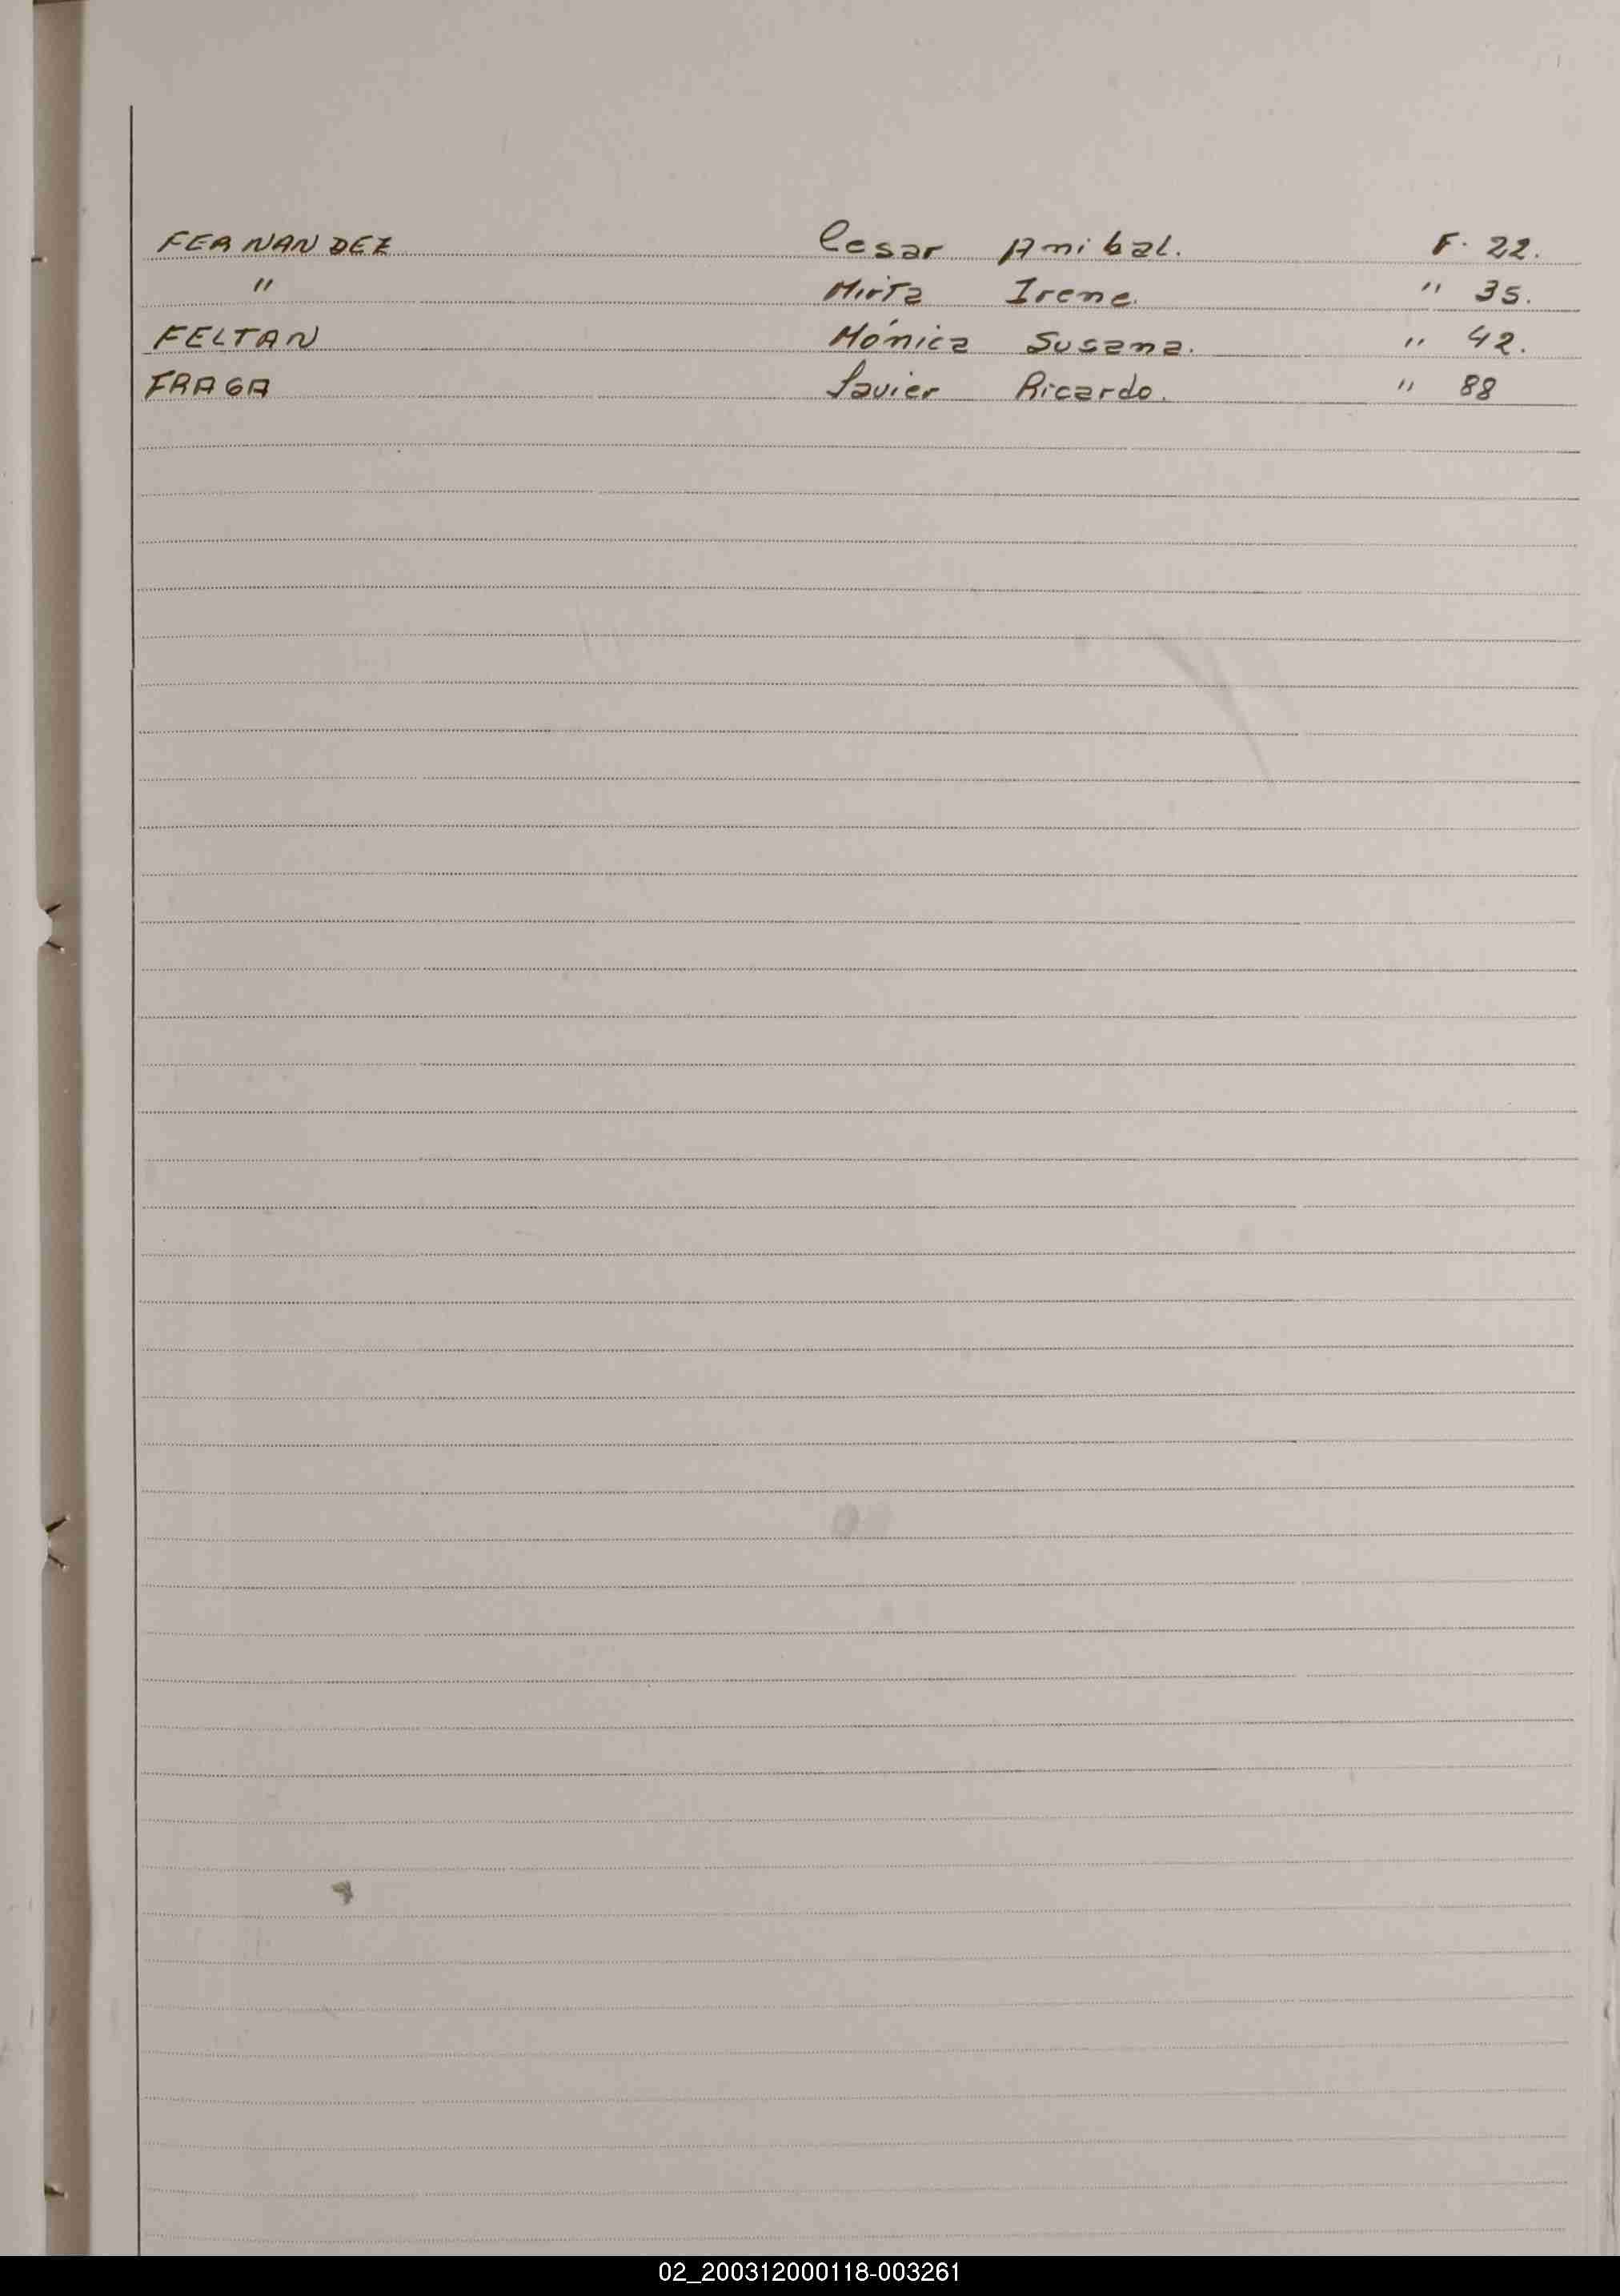 FERNANDEZ Cesar Anibal. F. 22.
" Mirta Irene. " 35.
FELTAN Mónica Susana. " 42.
FRAGA Javier Ricardo. " 88
02_200312000118-003261